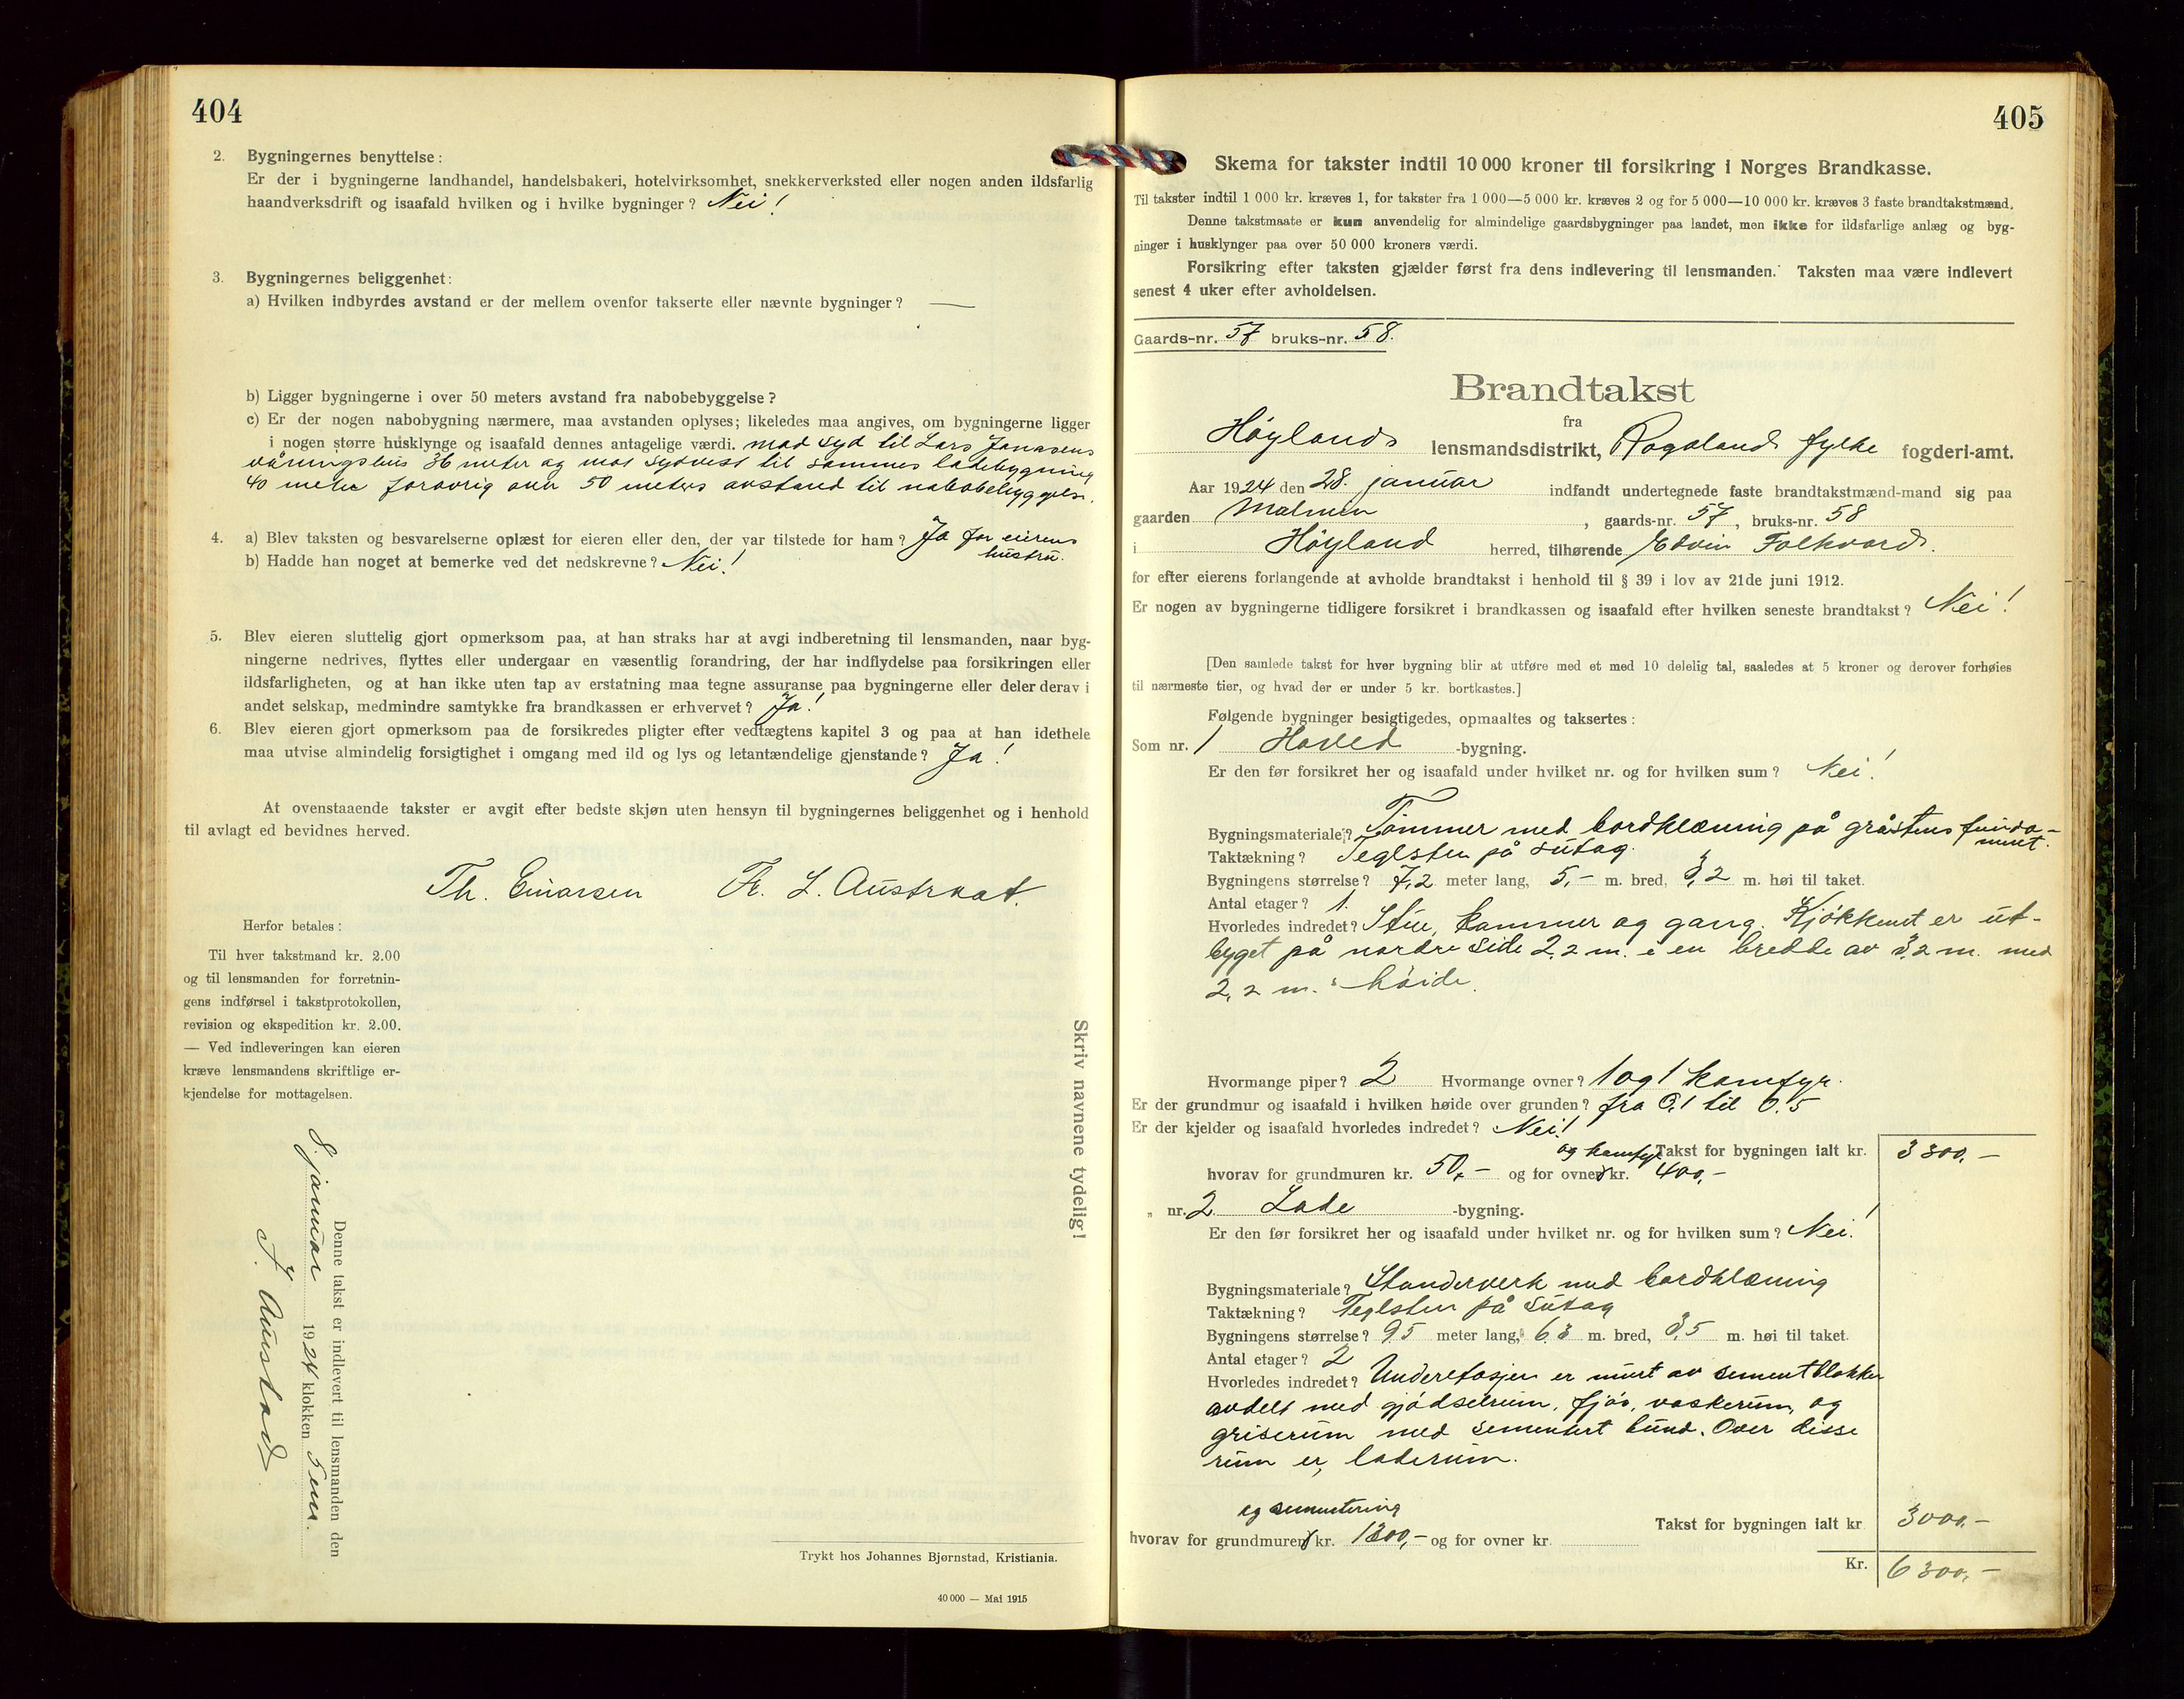 404
2. Bygningernes benyttelse:
Er der i bygningerne landhandel, handelsbakeri, hotelvirksomhet, snekkerverksted eller nogen anden ildsfarlig
haandverksdrift og isaafald hvilken og i hvilke bygninger? Nei!
3. Bygningernes beliggenhet:
a) Hvilken indbyrdes avstand er der mellem ovenfor takserte eller nævnte bygninger? —
b) Ligger bygningerne i over 50 meters avstand fra nabobebyggelse?
c) Er der nogen nabobygning nærmere, maa avstanden oplyses; likeledes maa angives, om bygningerne ligger
i nogen større husklynge og isaafald dennes antagelige værdi. mod syd til Lars Jonasens
våningshus 36 meter og mot sydvest til sammes ladebygning
40 meter forøvrig over 50 meters avstand til nabobebyggelse.
4. a) Blev taksten og besvarelserne oplæst for eieren eller den, der var tilstede for ham? Ja for eierens
hustru.
b) Hadde han noget at bemerke ved det nedskrevne? Nei!
5. Blev eieren sluttelig gjort opmerksom paa, at han straks har at avgi indberetning til lensmanden, naar byg-
ningerne nedrives, flyttes eller undergaar en væsentlig forandring, der har indflydelse paa forsikringen eller
ildsfarligheten, og at han ikke uten tap av erstatning maa tegne assuranse paa bygningerne eller deler derav i
andet selskap, medmindre samtykke fra brandkassen er erhvervet? Ja!
6. Blev eieren gjort opmerksom paa de forsikredes pligter efter vedtægtens kapitel 3 og paa at han idethele
maa utvise almindelig forsigtighet i omgang med ild og lys og letantændelige gjenstande? Ja!
At ovenstaaende takster er avgit efter bedste skjøn uten hensyn til bygningernes beliggenhet og i henhold
til avlagt ed bevidnes herved.
Th. Einarsen Fr. L. Austraat.
Herfor betales:
Til hver takstmand kr. 2.00
og til lensmanden for forretnin-
gens indførsel i takstprotokollen,
revision og ekspedition kr. 2.00.
— Ved indleveringen kan eieren
kræve lensmandens skriftlige er-
kjendelse for mottagelsen.
Skriv navnene tydelig!
Denne takst er indlevert til lensmanden den
8. januar 1924 klokken 5 em.
J. Austad
Trykt hos Johannes Bjørnstad, Kristiania.
40 000 — Mai 1915
405
Skema for takster indtil 10 000 kroner til forsikring i Norges Brandkasse.
Til takster indtil 1 000 kr. kræves 1, for takster fra 1 000—5 000 kr. kræves 2 og for 5 000—10 000 kr. kræves 3 faste brandtakstmænd.
Denne takstmaate er kun anvendelig for almindelige gaardsbygninger paa landet, men ikke for ildsfarlige anlæg og byg-
ninger i husklynger paa over 50 000 kroners værdi.
Forsikring efter taksten gjælder først fra dens indlevering til lensmanden. Taksten maa være indlevert
senest 4 uker efter avholdelsen.
Gaards-nr. 57 bruks-nr. 58.
Brandtakst
fra
Høylands lensmandsdistrikt, Rogalands fylke fogderi-amt.
Aar 1924 den 28. januar indfandt undertegnede faste brandtakstmænd-mand sig paa
gaarden Malmen, gaards-nr. 57, bruks-nr. 58
i Høyland herred, tilhørende Edvin Folkvord.
for efter eierens forlangende at avholde brandtakst i henhold til § 39 i lov av 21de juni 1912.
Er nogen av bygningerne tidligere forsikret i brandkassen og isaafald efter hvilken seneste brandtakst? Nei!
[Den samlede takst for hver bygning blir at utføre med et med 10 delelig tal, saaledes at 5 kroner og derover forhøies
til nærmeste tier, og hvad der er under 5 kr. bortkastes.]
Følgende bygninger besigtigedes, opmaaltes og taksertes:
Som nr. 1 Hoved -bygning.
Er den før forsikret her og isaafald under hvilket nr. og for hvilken sum? Nei!
Bygningsmateriale? Tømmer med bordklæning på gråstens funda-
ment.
Taktækning? Teglsten på sutag.
Bygningens størrelse? 7,2 meter lang, 5,- m. bred, 3,2 m. høi til taket.
Antal etager? 1.
Hvorledes indredet? Stue, kammer og gang. Kjøkkenet er ut-
bygget på nordre side 2,2 m. i en bredde av 3,2 m. med
2,2 m. høide.
Hvormange piper? 2 Hvormange ovner? 1 og 1 komfyr.
Er der grundmur og isaafald i hvilken høide over grunden? fra 0,1 til 0,5
Er der kjelder og isaafald hvorledes indredet? Nei!
og komfyr Takst for bygningen ialt kr. 3300,-
hvorav for grundmuren kr. 50,- og for ovner kr. 400,-
„ nr. 2 Lade -bygning.
Er den før forsikret her og isaafald under hvilket nr. og for hvilken sum? Nei!
Bygningsmateriale? Standerverk med bordklæning
Taktækning? Teglsten på sutag
Bygningens størrelse? 9,5 meter lang, 6,3 m. bred, 3,5 m. høi til taket.
Antal etager? 2
Hvorledes indredet? Underetasjen er muret av sementblokker
avdelt med gjødselrum, fjøs, vaskerum, og
griserum med sementert bund. Over disse
rum er laderum.
og sementering
Takst for bygningen ialt kr 3000,-
hvorav for grundmuren kr. 1300,- og for ovner kr.
Kr. 6300,-